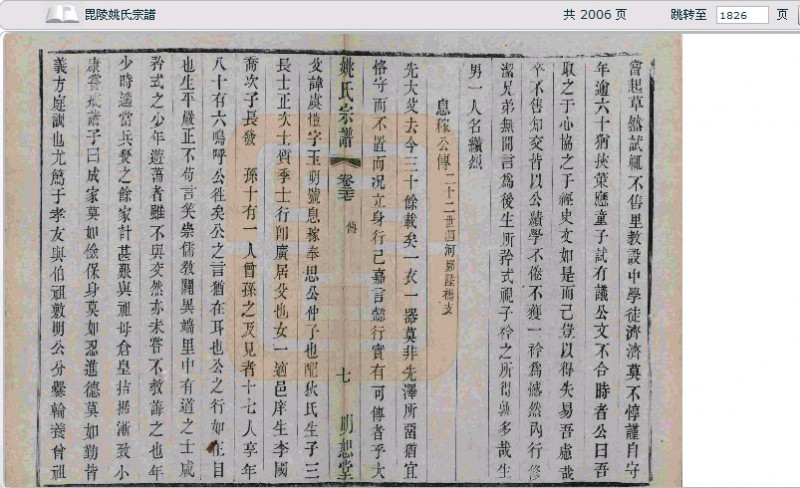 毘陵姚氏宗譜
共 2006 页
跳转至 1826 页
嘗起草然試輒不售里教設中學徒濟濟莫不惇謹自守
年逾六十猶挾策應童子試有議公文不合時者公曰吾
取之于心協之于經史文如是而已豈以得失易吾慮哉
卒不售知交皆以公績學不倦不獲一衿為憾然內行修
潔兄弟無間言為後生所矜式視子衿之所得孰多哉生
男一人名繼烈
息稼公傳 二十二世
先大父去今三十餘載矣一衣一器莫非先澤所留猶宜
恪守而不置而況立身行己嘉言懿行實有可傳者乎大
姚氏宗譜 卷 傳 七 明恕堂
父諱虞禮字玉明號息稼奉思公仲子也配狄氏生子三
長士正次士質季士行即廣居父也女一適邑庠生李國
喬次子長發 孫十有一人曾孫之及見者十七人享年
八十有六嗚呼公往矣公之言猶在耳也公之行如在目
也生平嚴正不苟言笑崇儒教闢異端里中有道之士咸
矜式之少年遊蕩者雖不與交然亦未嘗不教誨之也年
少時適當兵燹之餘家計甚艱與祖母倉皇拮据漸致小
康嘗戒諸子曰成家莫如儉保身莫如忍進德莫如勤皆
義方庭訓也尤篤于孝友與伯祖敦明公分爨輪養曾祖